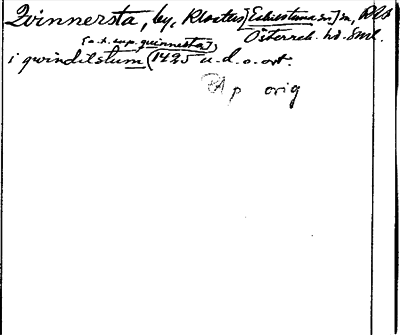 Qvinnersta, by, Klosters [Eskilstuna sn] sn, RAS
Österrek. hd. Sml.
[a.t. sup. quinnesta],
i qwindilstum (1425 u.d.o.ort.
RA p orig